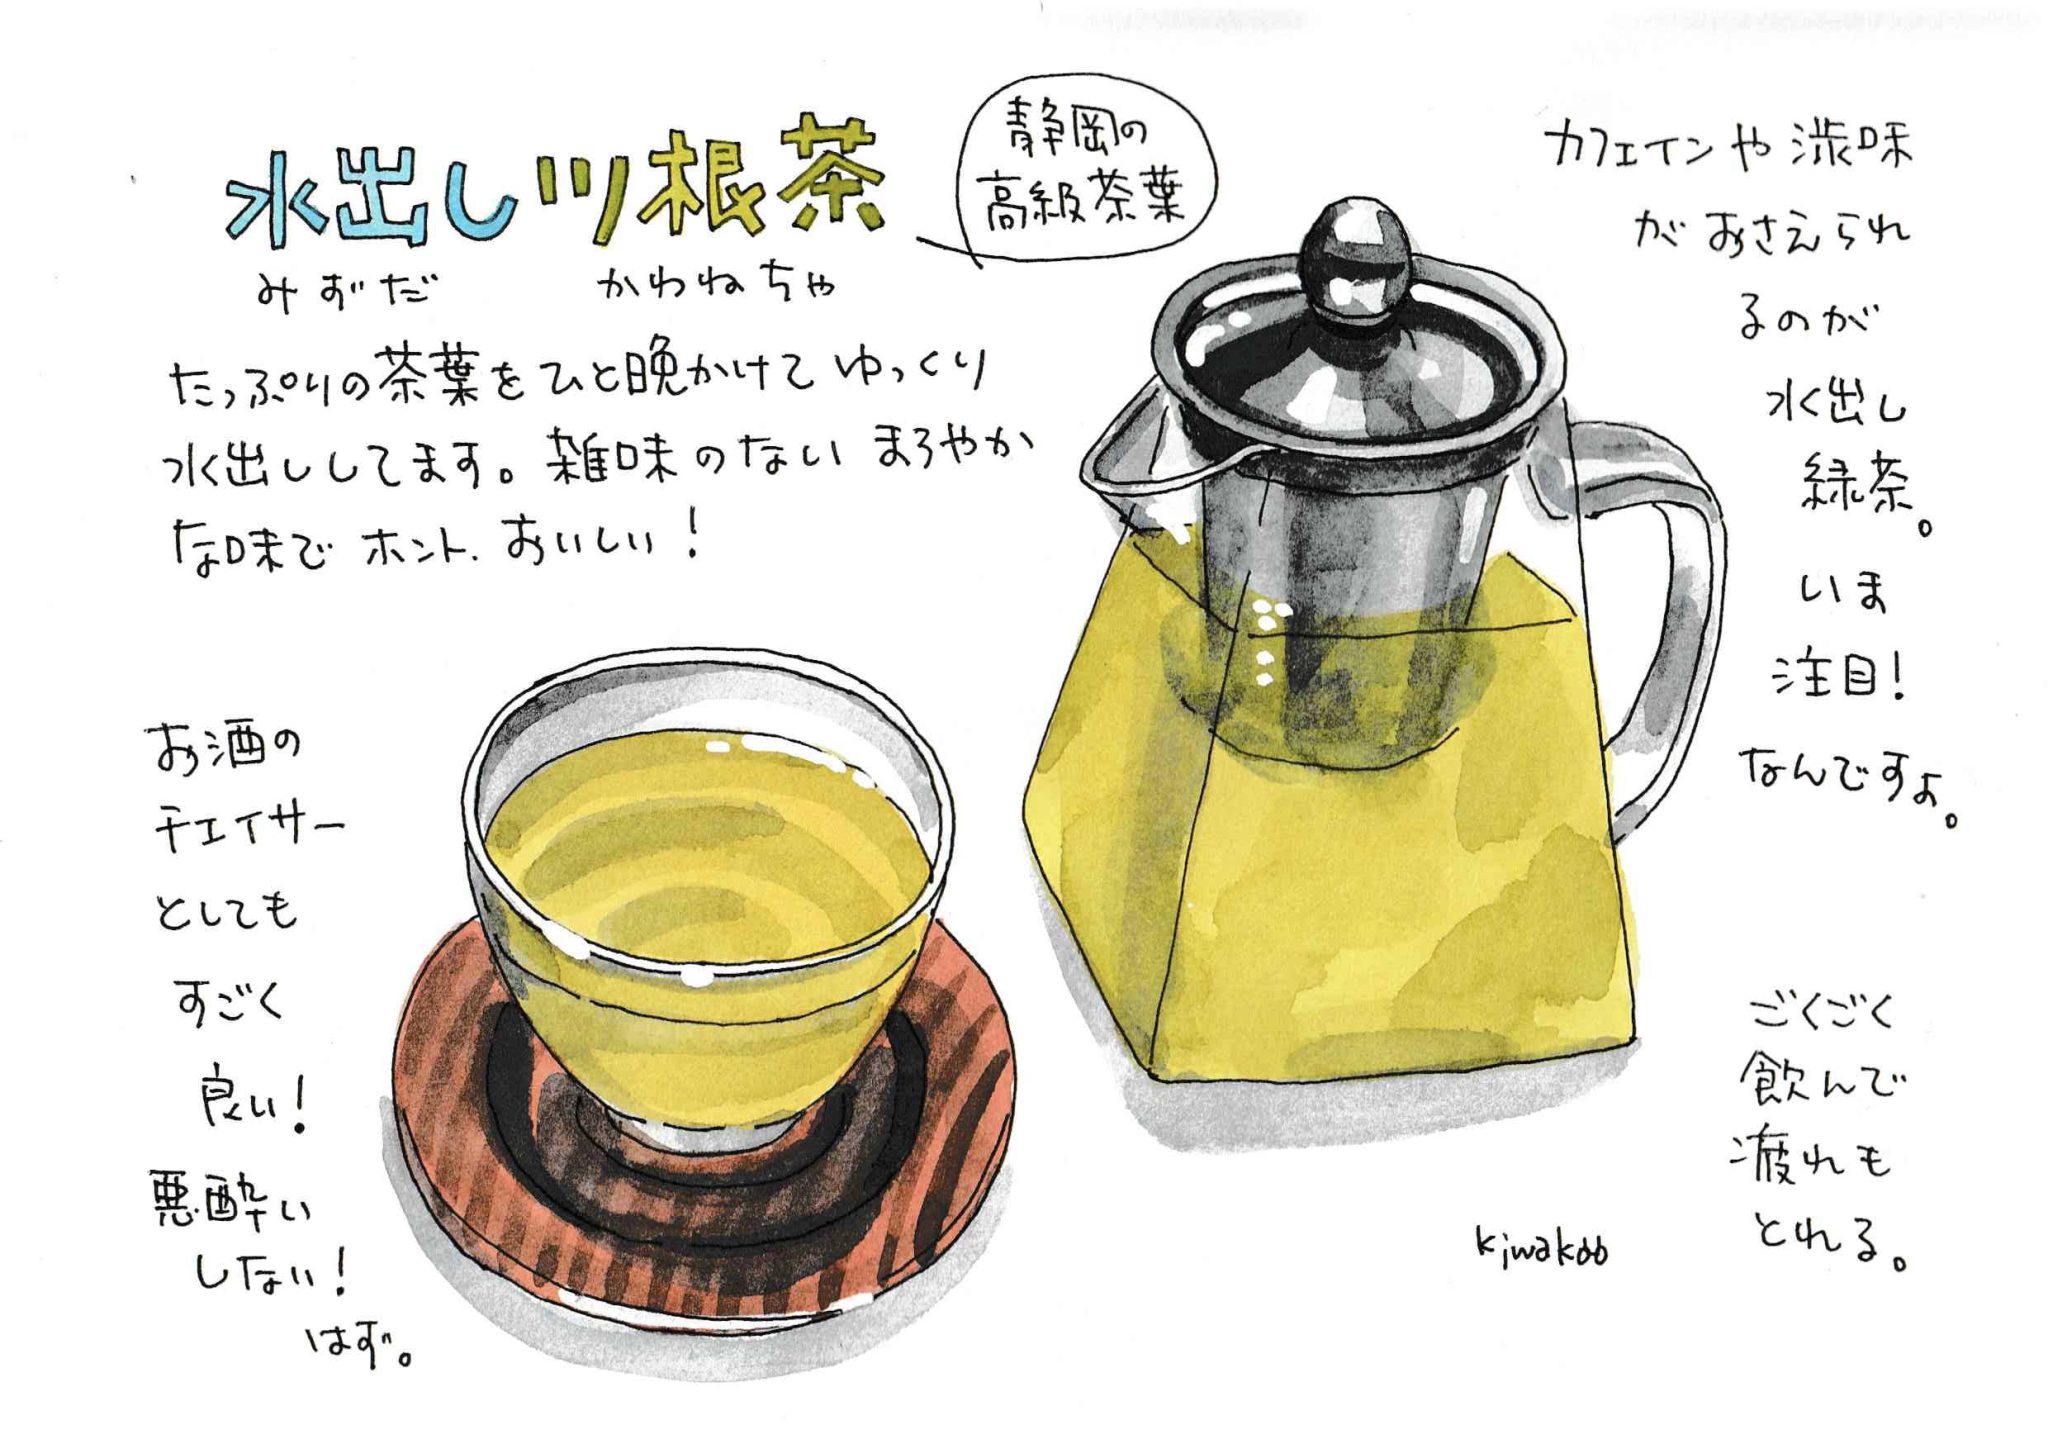 水出し川根茶
みずだ かわねちゃ
静岡の
高級茶葉
たっぷりの茶葉をひと晩かけてゆっくり
水出ししてます。雑味のないまろやか
な味でホント、おいしい!
カフェインや渋味
がおさえられ
るのが
水出し
緑茶。
いま
注目!
なんですよ。
お酒の
チェイサー
としても
すごく
良い!
悪酔い
しない!
はず。
ごくごく
飲んで
疲れも
とれる。
kiwakoo